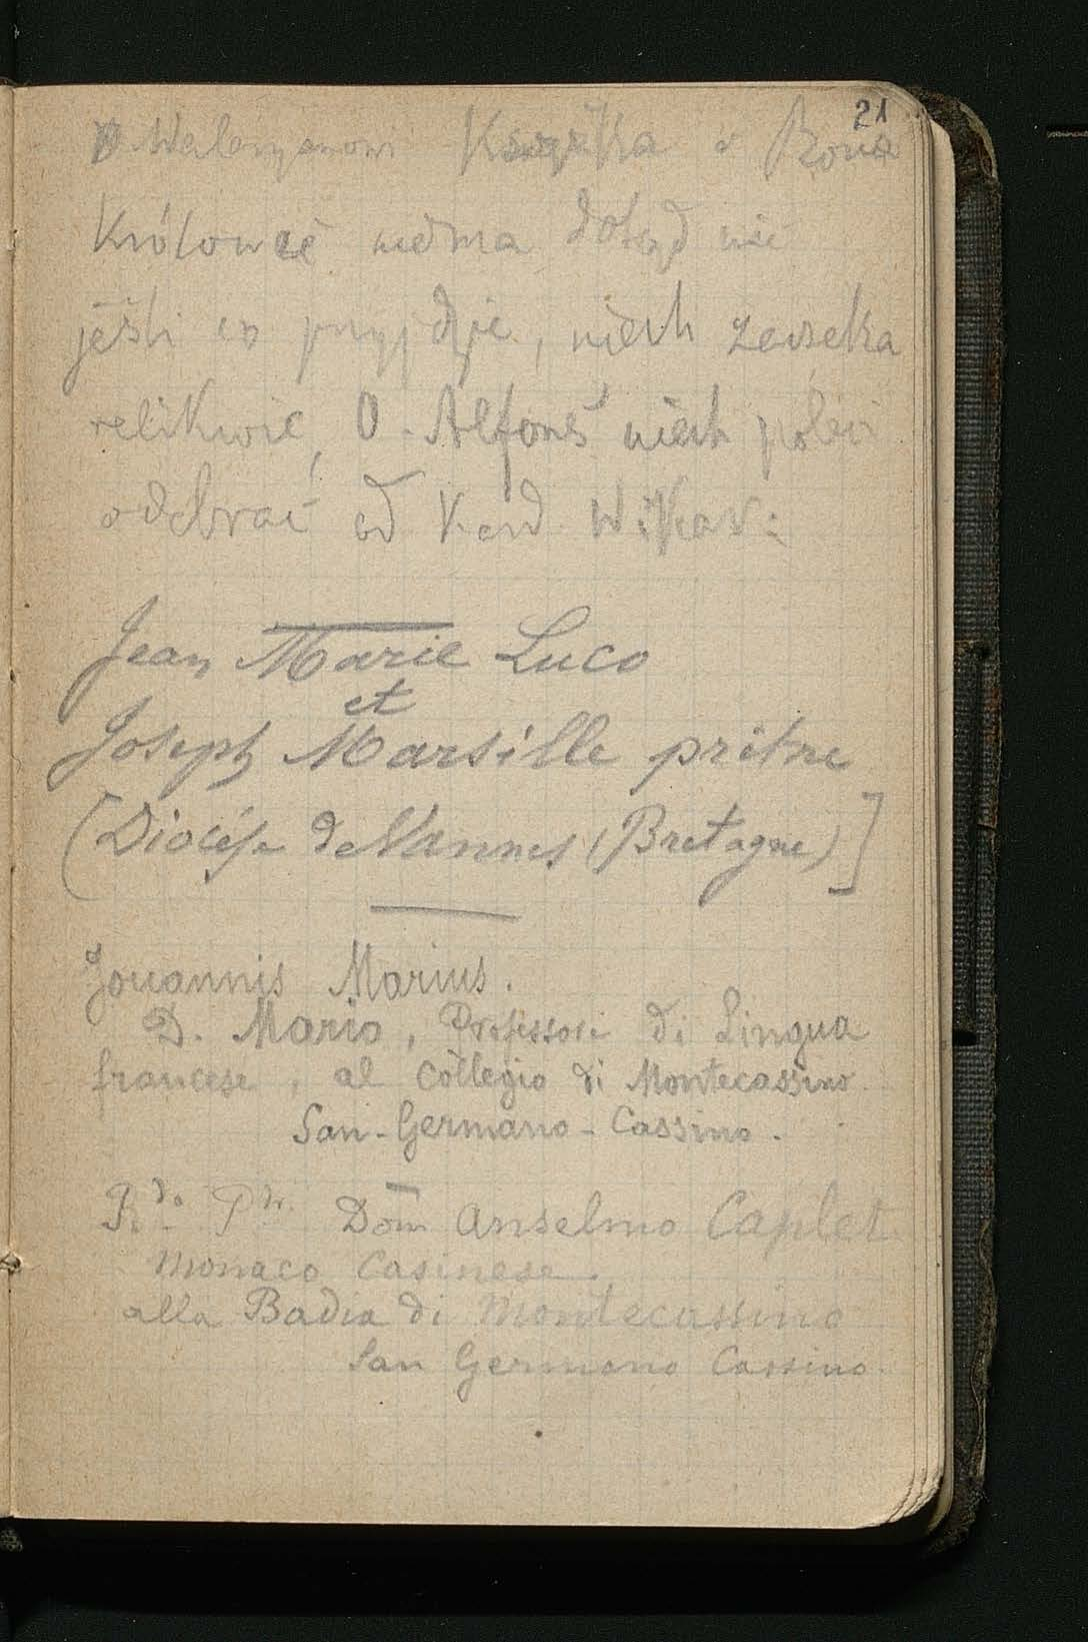 21
Waleryanowi Książka o
Królowéj niéma dotąd nic
jéśli co przyjdzie, niech zaczeka
relikwié O. Alfons niech poleci
odebrać od Kard. Wikar:
Jean Marie Luco
et
Joseph Marsille prêtre
[Diocèse de Vannes (Bretagne)]
Jouannis Marius.
D. Mario, Professore di Lingua
francese, al Collegio di Montecassino
San-Germano-Cassino.
Rdo Pdr. Dom Anselmo Caplet
Monaco Casinese.
alla Badia di Montecassino
San Germano Cassino.